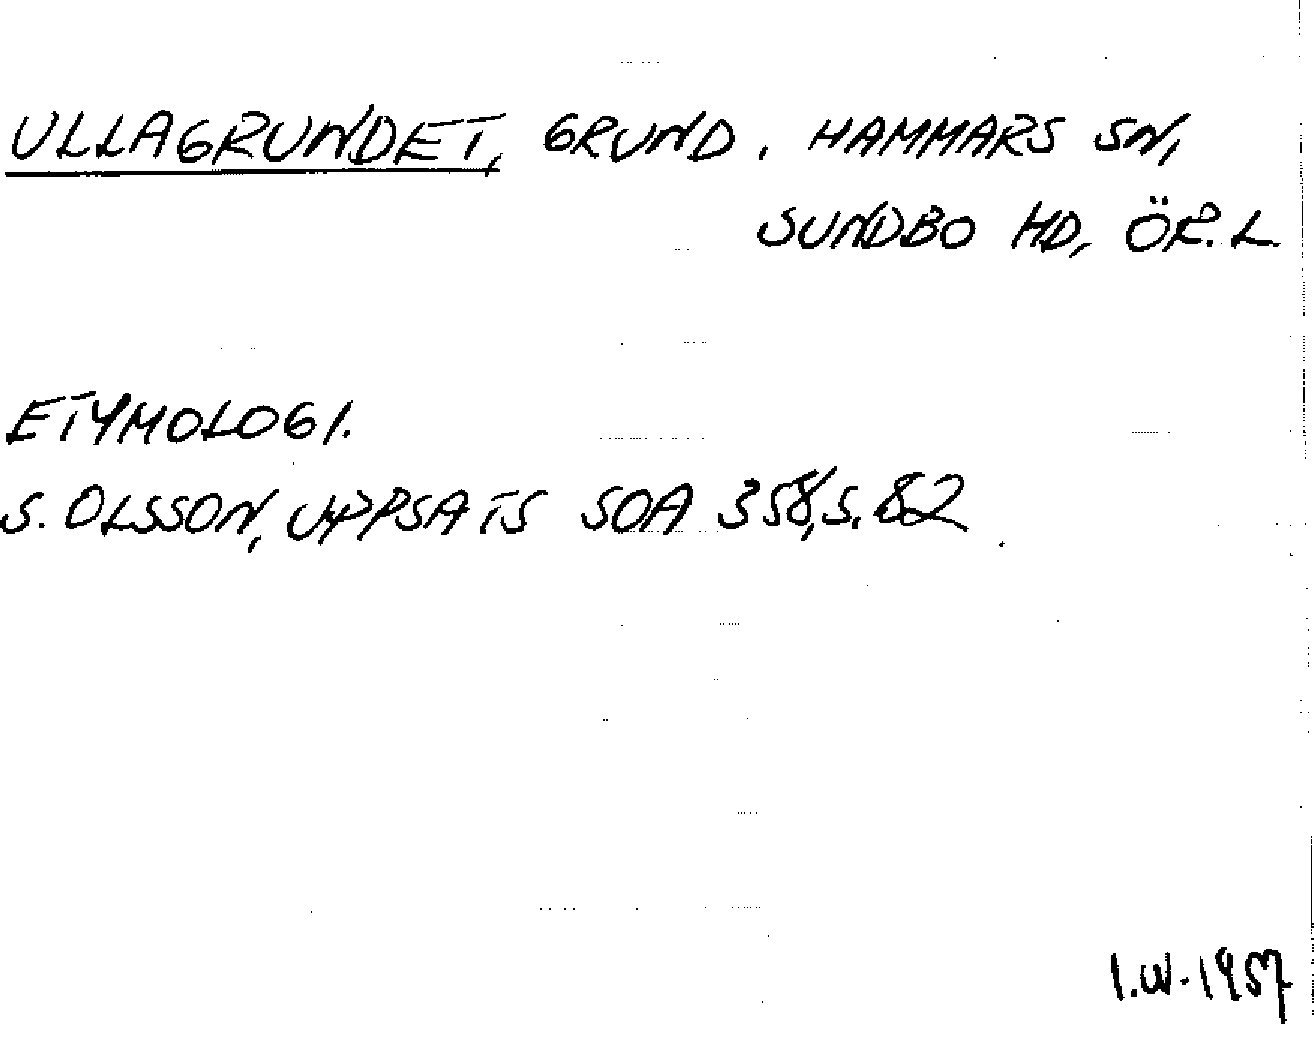 ULLAGRUNDET, GRUND. HAMMARS SN,
SUNDBO HD, ÖR.L.
ETYMOLOGI.
S. OLSSON, UPPSATS SOA 358, S. 82
I.W. 1957